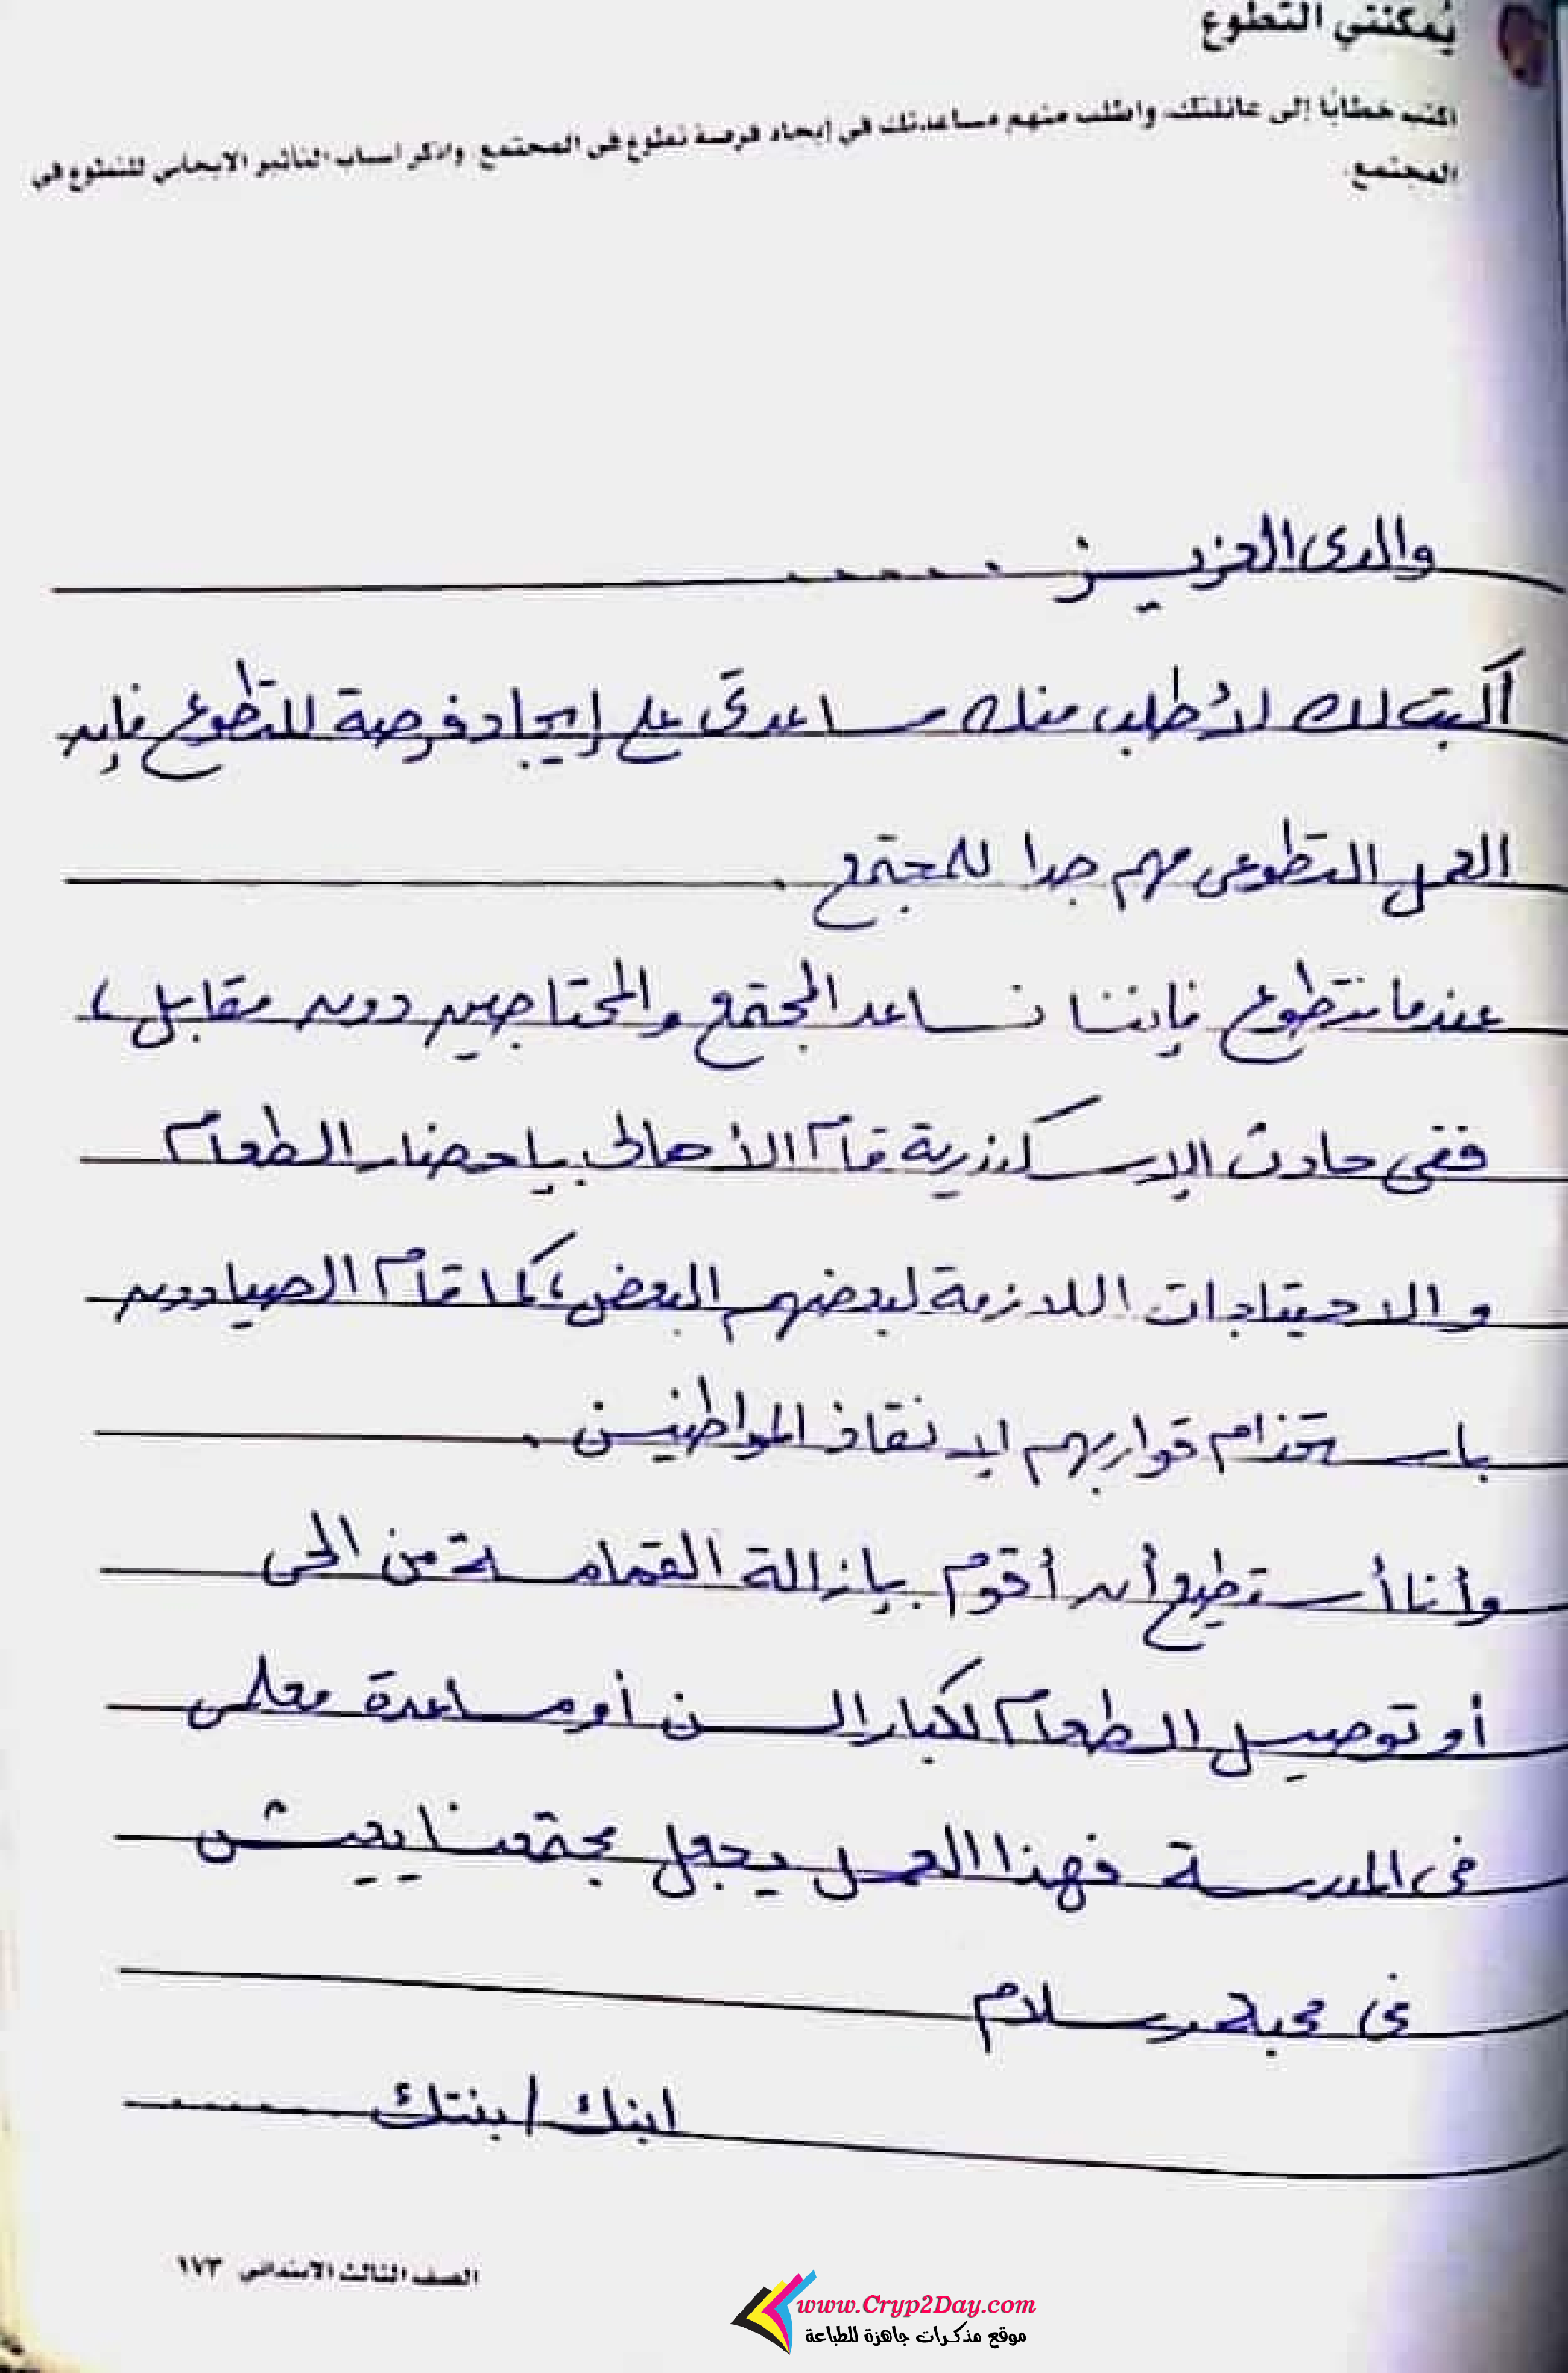 يُمكنني التطوع
اكتب خطابًا إلى عائلتك، واطلب منهم مساعدتك في إيجاد فرصة تطوع في المجتمع. واذكر أسباب التأثير الإيجابي للتطوع في
المجتمع.
والدى العزيز .....
أكتب لك لأطلب منك مساعدتى على إيجاد فرصة للتطوع فإن
العمل التطوعى مهم جدا للمجتمع .
عندما نتطوع فإننا نساعد المجتمع والمحتاجين دون مقابل ،
ففى حادث الإسكندرية قام الأهالى بإحضار الطعام
والاحتياجات اللازمة لبعضهم البعض ، كما قام الصيادون
باستخدام قواربهم لإنقاذ المواطنين .
وأنا أستطيع أن أقوم بإزالة القمامة من الحى
أو توصيل الطعام لكبار السن أو مساعدة معلمى
فى المدرسة فهذا العمل يجعل مجتمعنا يعيش
فى محبة وسلام
ابنك / بنتك ......
الصف الثالث الابتدائي ١٧٣
www.Cryp2Day.com
موقع مذكرات جاهزة للطباعة